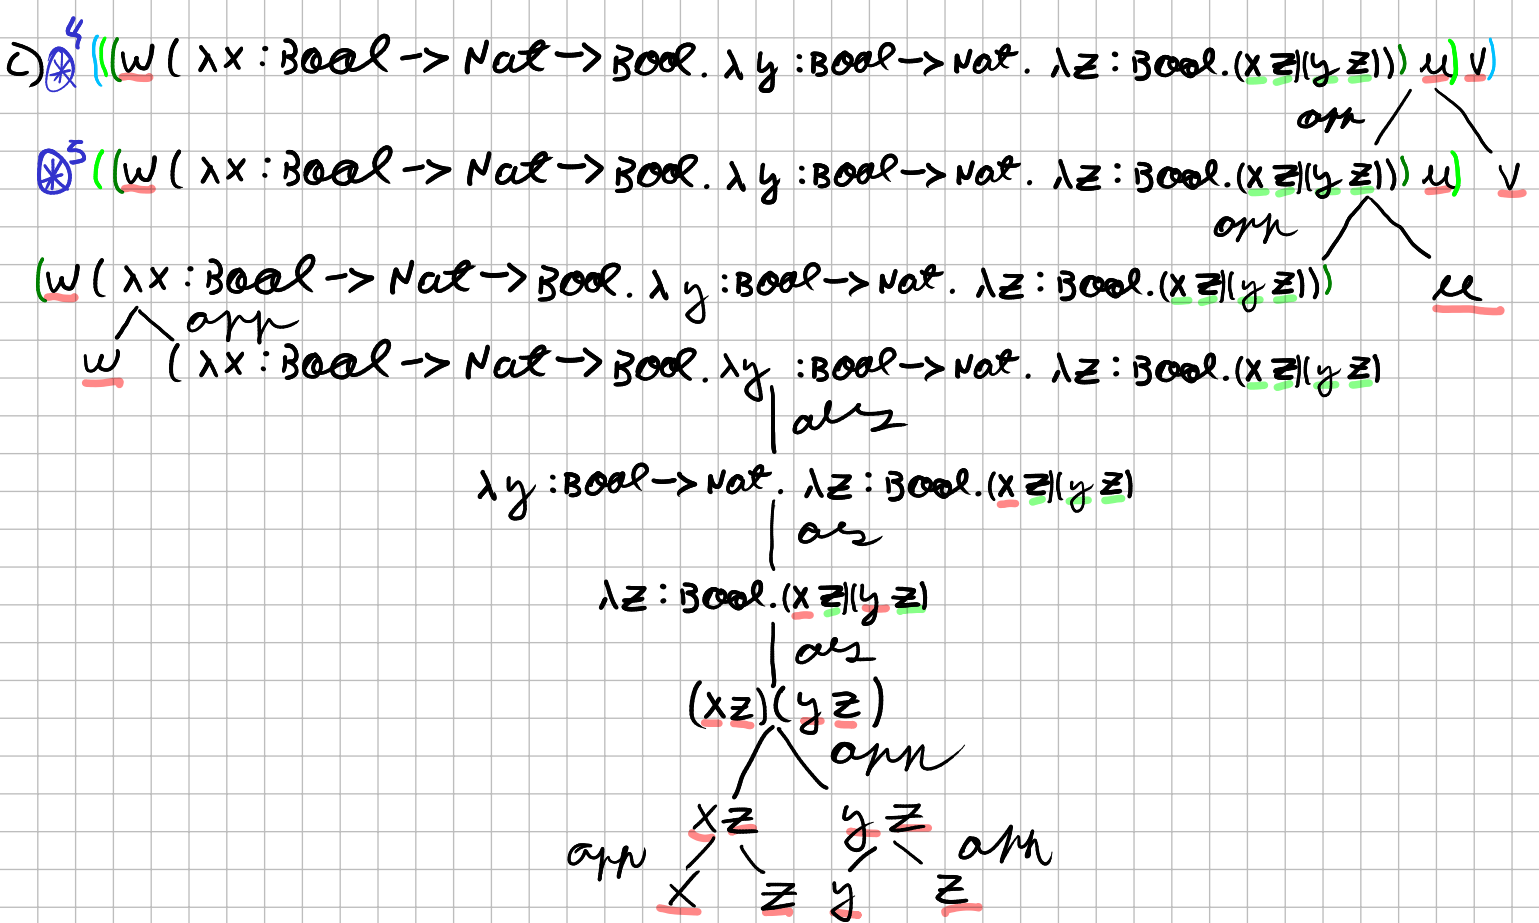 c) ⊛⁴ (((w ( λx : Bool -> Nat -> Bool. λy : Bool -> Nat. λz : Bool.(x z)(y z))) u) v)
app
⊛⁵ ((w ( λx : Bool -> Nat -> Bool. λy : Bool -> Nat. λz : Bool.(x z)(y z))) u) v
app
(w ( λx : Bool -> Nat -> Bool. λy : Bool -> Nat. λz : Bool.(x z)(y z))) u
app
w ( λx : Bool -> Nat -> Bool. λy : Bool -> Nat. λz : Bool.(x z)(y z)
abs
λy : Bool -> Nat. λz : Bool.(x z)(y z)
abs
λz : Bool.(x z)(y z)
abs
(x z)(y z)
app
x z y z
app app
x z y z